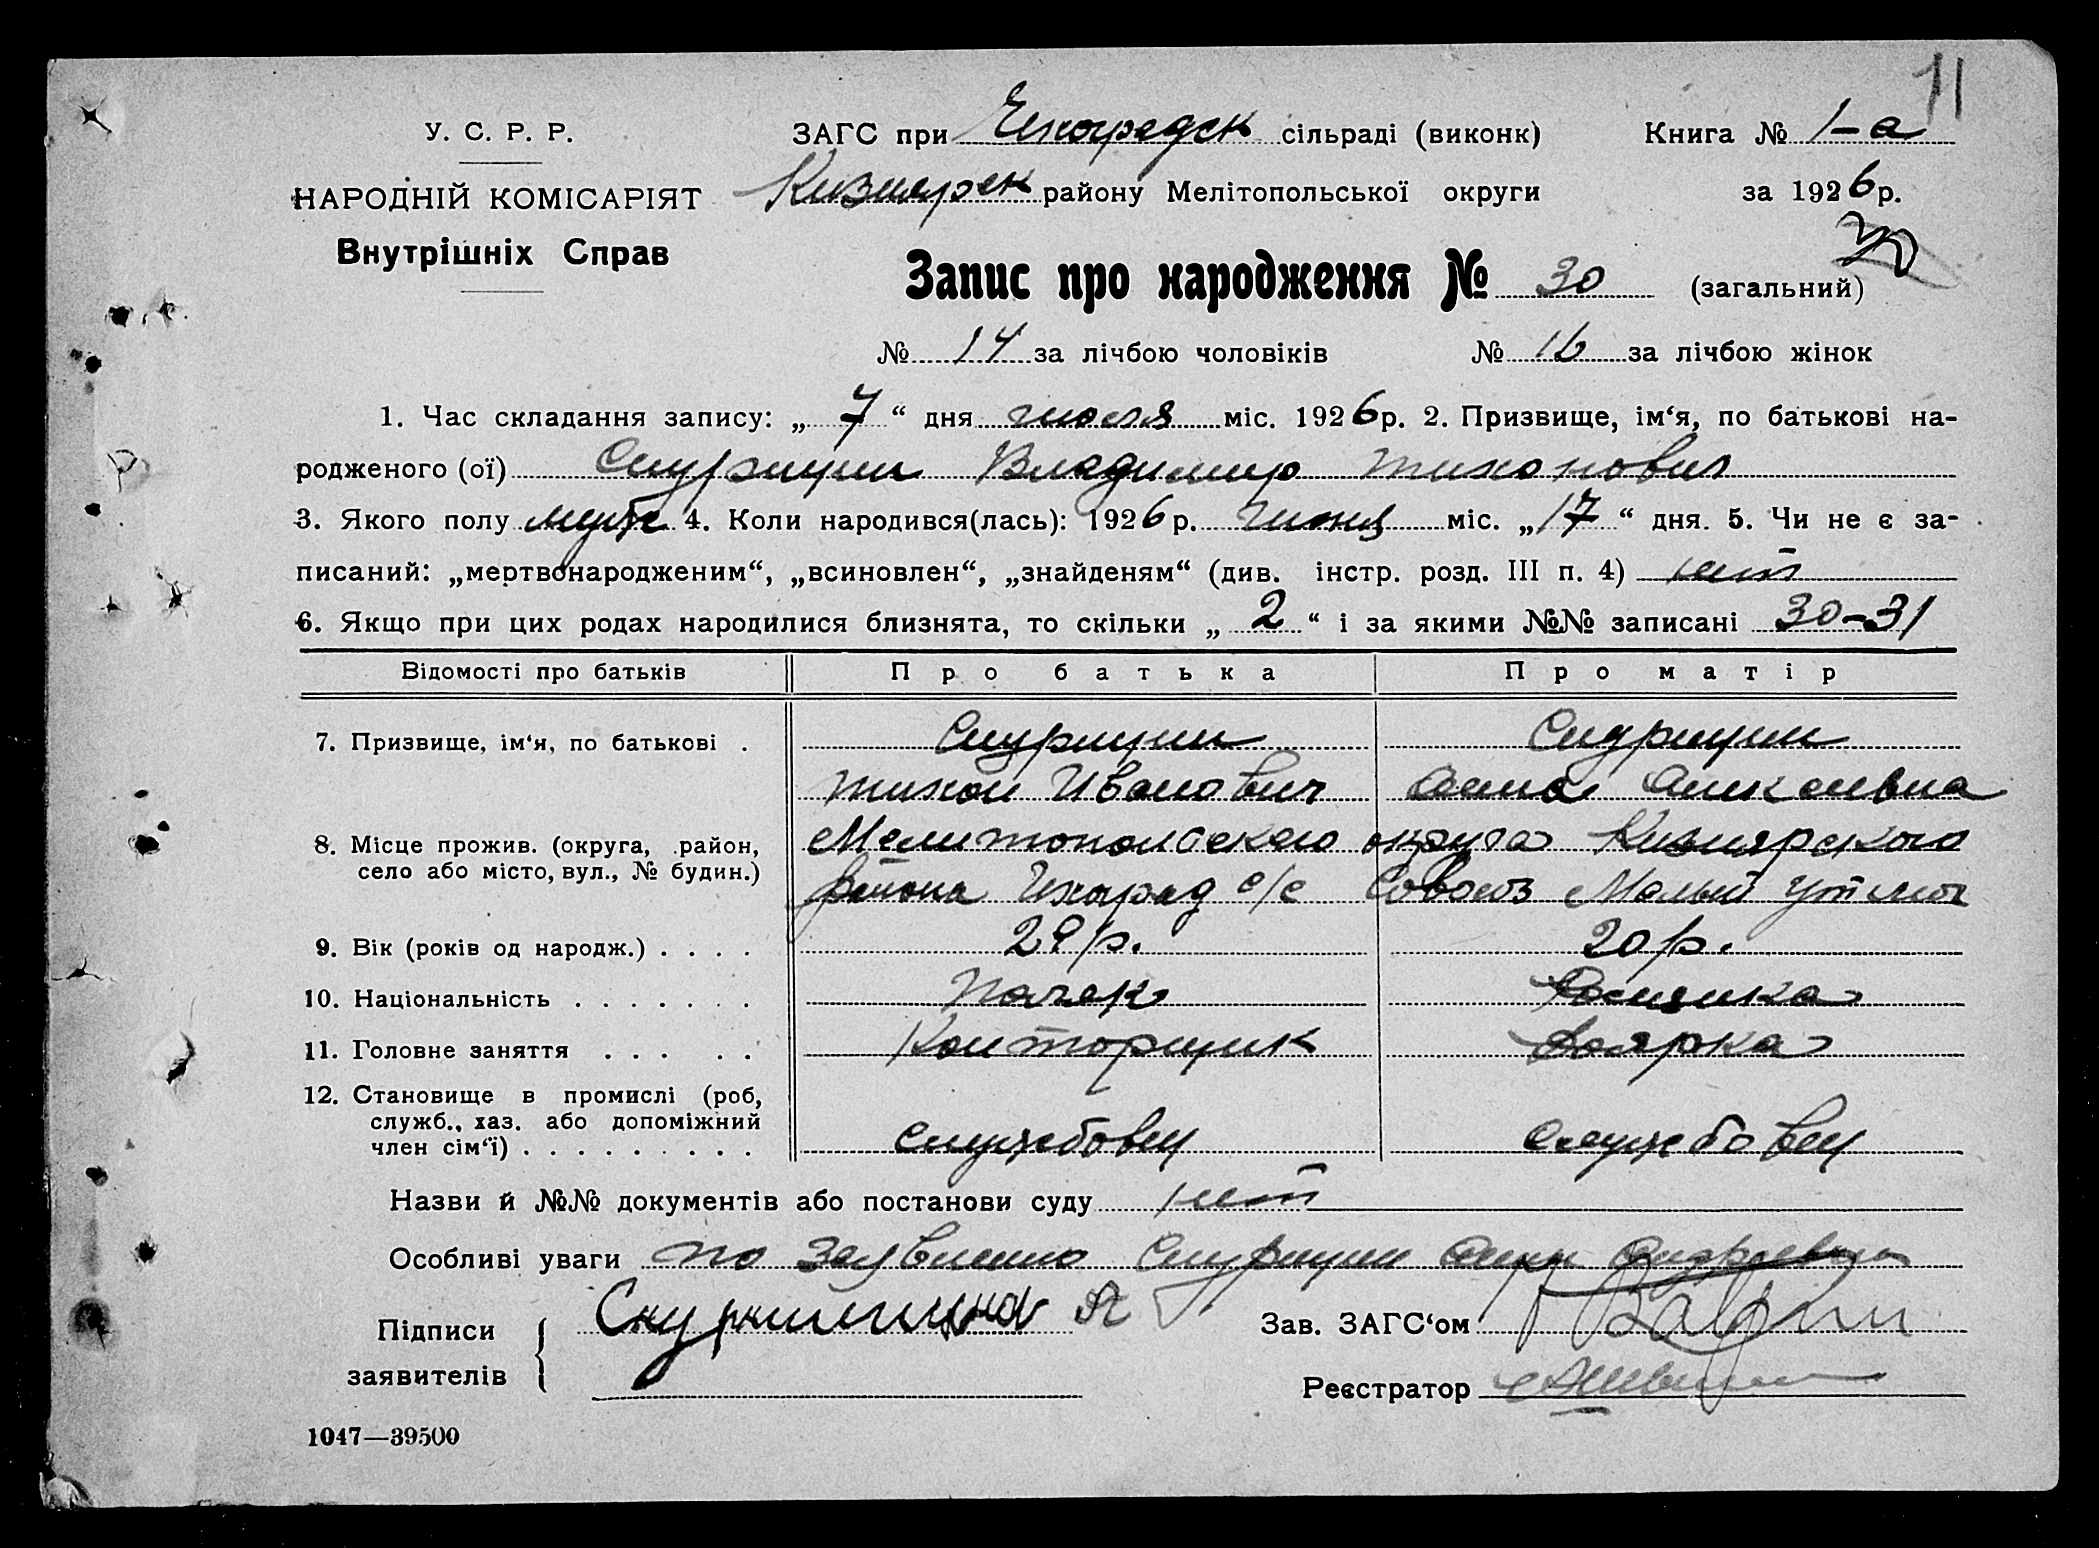 11
У. С. Р. Р.
НАРОДНІЙ КОМІСАРІЯТ
Внутрішніх Справ
ЗАГС при Чехоградск сільраді (виконк)
Книга № 1-а
Кизиярск району Мелітопольської округи
за 1926 р.
Запис про народження № 30 (загальний)
№ 14 за лічбою чоловіків № 16 за лічбою жінок
1. Час складання запису: „ 7 “ дня июля міс. 1926 р. 2. Призвище, ім‘я, по батькові на-
родженого (ої) Владимир Тихонович
3. Якого полу мужс 4. Коли народився(лась): 1926 р. июня міс. „ 17 “ дня. 5. Чи не є за-
писаний: „мертвонародженим“, „всиновлен“, „знайденям“ (див. інстр. розд. III п. 4) нет
6. Якщо при цих родах народилися близнята, то скільки „ 2 “ і за якими №№ записані 30-31
Відомості про батьків Про батька Про матір
7. Призвище, ім‘я, по батькові .
Тихон Иванович Анна
8. Місце прожив. (округа, район, Мелитопольского округа Кизиярского
село або місто, вул., № будин.) района Чехоград с/с Совхоз Малый Утлюг
9. Вік (років од народж.) . . . . 29 р. 20 р.
10. Національність . . . . . . . Поляк
11. Головне заняття . . . . . Конторщик Доярка
12. Становище в промислі (роб,
служб., хаз. або допоміжний
член сім‘ї) . . . . . . . . . службовец службовец
Назви й №№ документів або постанови суду нет
Особливі уваги по заявлению
Підписи
заявителів
Зав. ЗАГС‘ом
Реєстратор
1047—39500